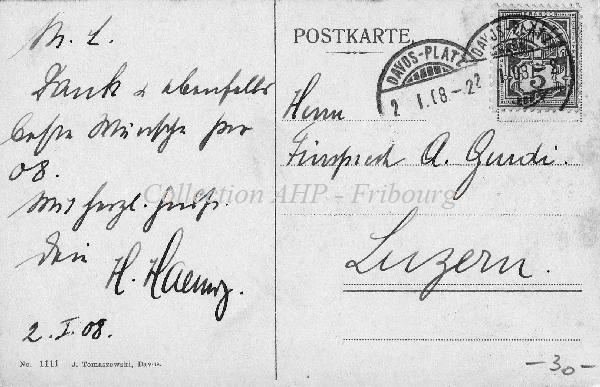 M. L.
Dank & ebenfalls
beste Wünsche pro
08.
Mit herzl. Gruß.
Dein
H.
2. I. 08.
No. 1111 J. Tomaszewski, Davos.
POSTKARTE.
DAVOS-PLATZ
2. I. 08.-22
DAVOS-PLATZ
5
Herrn
Fürsprech A.
Luzern.
Collection AHP - Fribourg
-30-